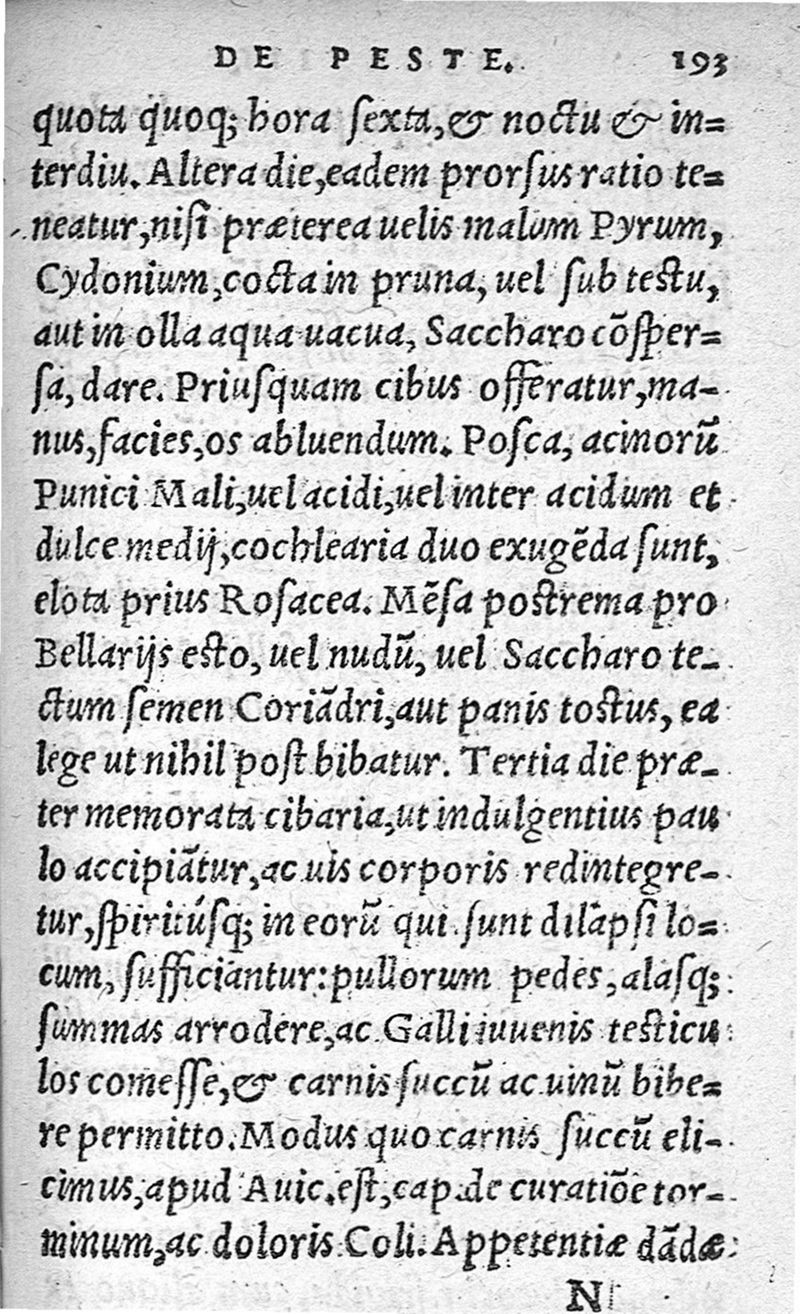 DE PESTE. 193
quota quoq; hora ſexta, & noctu & in=
terdiu. Altera die, eadem prorſus ratio te=
neatur, niſi præterea uelis malum Pyrum,
Cydonium, cocta in pruna, uel ſub teſtu,
aut in olla aqua uacua, Saccharo cōſper=
ſa, dare. Priuſquam cibus offeratur, ma-
nus, facies, os abluendum. Poſca, acinorū
Punici Mali, uel acidi, uel inter acidum et
dulce medij, cochlearia duo exugēda ſunt,
elota prius Roſacea. Mēſa poſtrema pro
Bellarijs eſto, uel nudū, uel Saccharo te-
ctum ſemen Coriādri, aut panis toſtus, ea
lege ut nihil poſt bibatur. Tertia die præ-
ter memorata cibaria, ut indulgentius pau
lo accipiātur, ac uis corporis redintegre-
tur, ſpiritúſq; in eorū qui ſunt dilapſi lo=
cum, ſufficiantur: pullorum pedes, alaſq;
ſummas arrodere, ac Galli iuuenis teſticu
los comeſſe, & carnis ſuccū ac uinū bibe=
re permitto. Modus quo carnis ſuccū eli-
cimus, apud Auic. eſt, cap. de curatiōe tor-
minum, ac doloris Coli. Appetentiæ dādæ
N